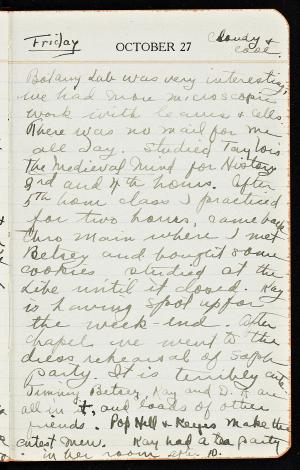 Friday
OCTOBER 27
Cloudy &
cool
Botany Lab was very interesting,
we had more microscopic
work with leaves & cells.
There was no mail for me
all day. Studied Taylors
the Medieval Mind for History
3rd and 4th hours. After
5th hour class I practiced
for two hours, came back
thro Main where I met
Betsey and bought some
cookies studied at the
Libe until it closed. Kay
is having Spot up for
the week-end. After
chapel we went to the
dress rehearsal of Soph
Party. It is terribly cute
Jimmy, Betsey, Kay and D. K are
all in it, and loads of other
friends. Pop Hill & Keyes make the
cutest men. Kay had a tea party
in her room after